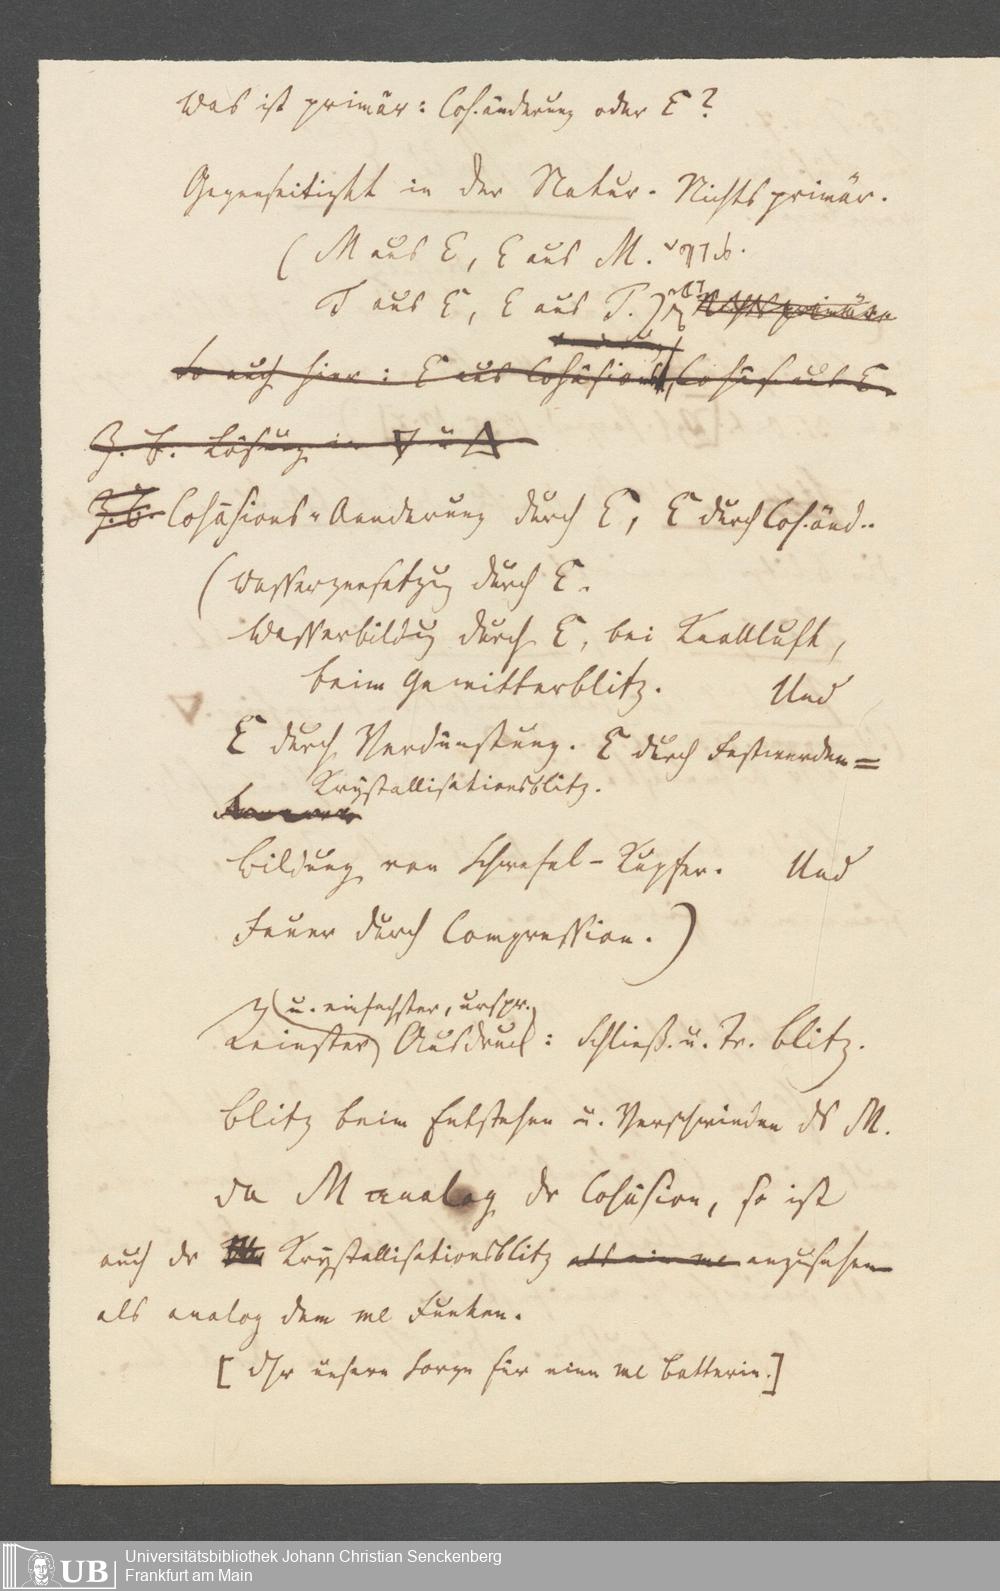 Was ist primär: Coh.änderung oder E?
Gegenseitigkt in der Natur. Nichts primär.
(M aus E, E aus M.
T aus E, E aus T.) Nichts primär.
So auch hier: E aus Cohäsions
änderung, Cohäs. aus E.
Z. B. Lösung in ▽ u △
Z. B. Cohäsions-Aenderung durch E, E durch Coh.änd..
(Wasserzersetzug durch E.
Wasserbildug durch E, bei Knallluft,
beim Gewitterblitz. Und
E durch Verdünstung. E durch Festwerden =
Krystallisationsblitz.
Bildung von Schwefel-Kupfer. Und
Feuer durch Compression.)
u. einfachster, urspr.
Reinster Ausdruck: Schließ. u. Tr. Blitz.
Blitz beim Entstehen u. Verschwinden ds M.
Da M analog dr Cohäsion, so ist
auch dr Krystallisationsblitz als ein me anzusehen
als analog dem me Funken.
[dhr unsere Sorge für eine me Batterie.]
Universitätsbibliothek Johann Christian Senckenberg
Frankfurt am Main
UB